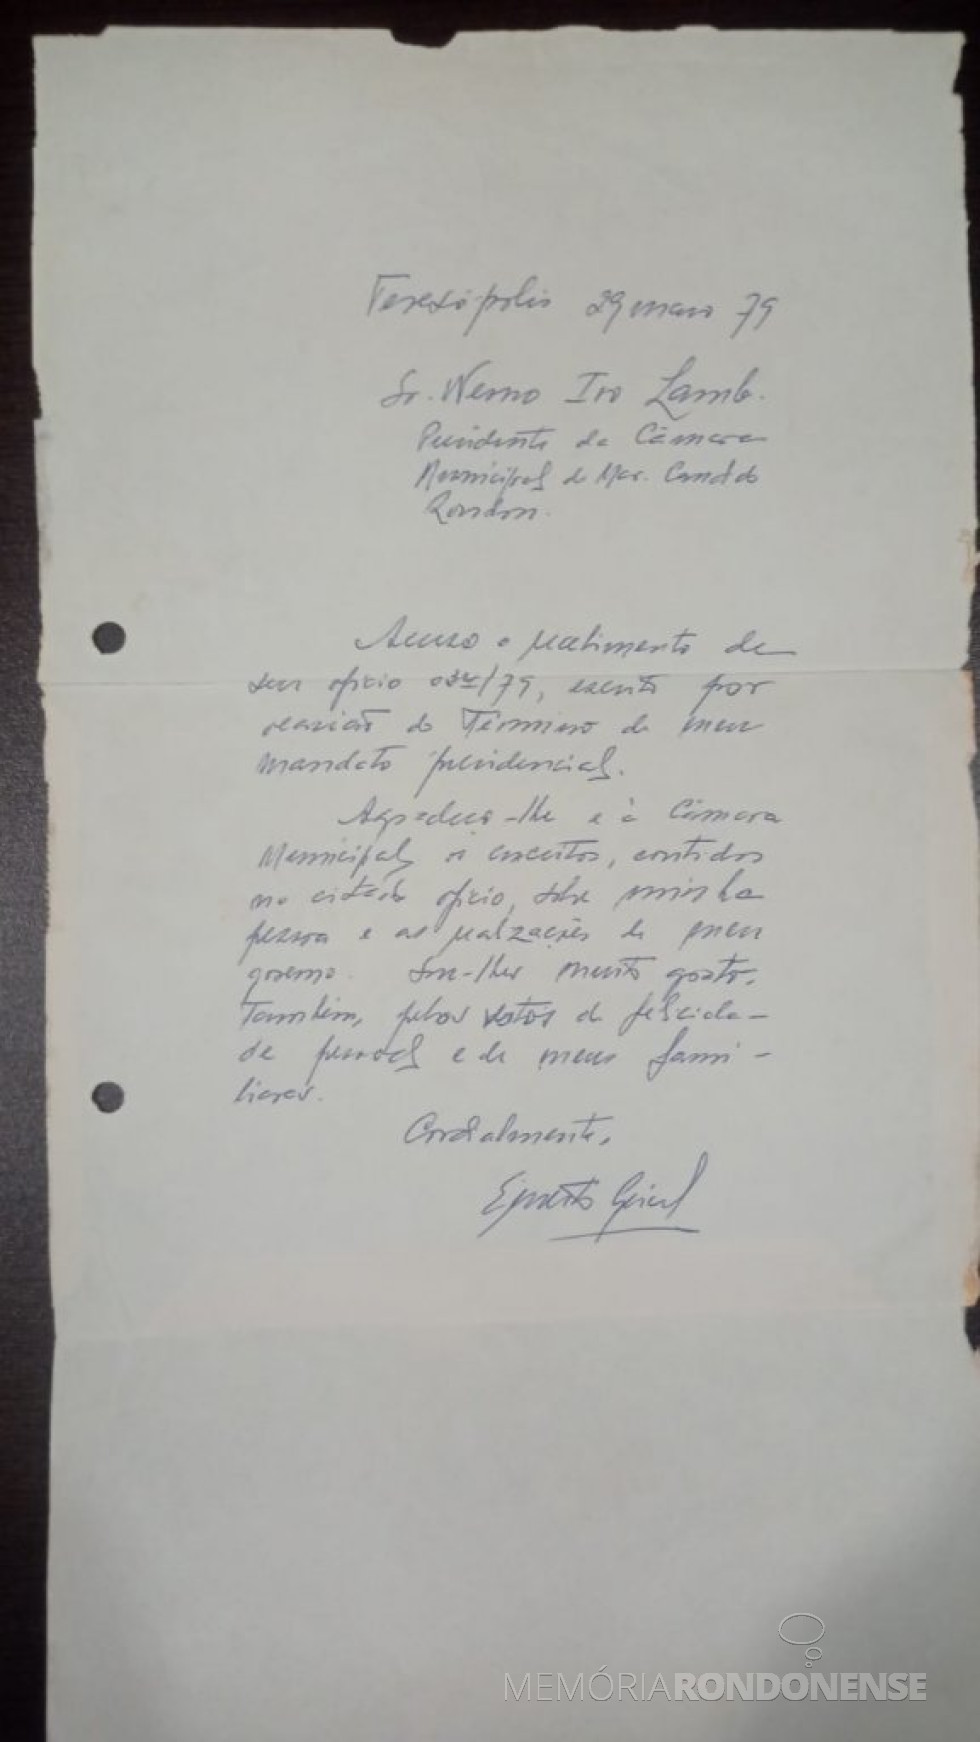 Teresópolis 29 março 79
Sr. Werno Ivo Lamb.
Presidente da Câmara
Municipal de Mar. Candido
Rondon.
Acuso o recebimento de
seu oficio /79, escrito por
ocasião do Término de meu
mandato presidencial.
Agradeço-lhe e à Câmara
Municipal os conceitos, contidos
no citado oficio, sobre minha
pessoa e as realizações de meu
governo. Sou-lhes muito grato,
também, pelos votos de felicida-
de pessoal e de meus fami-
liares.
Cordialmente,
Ernesto Geisel
MEMÓRIARONDONENSE